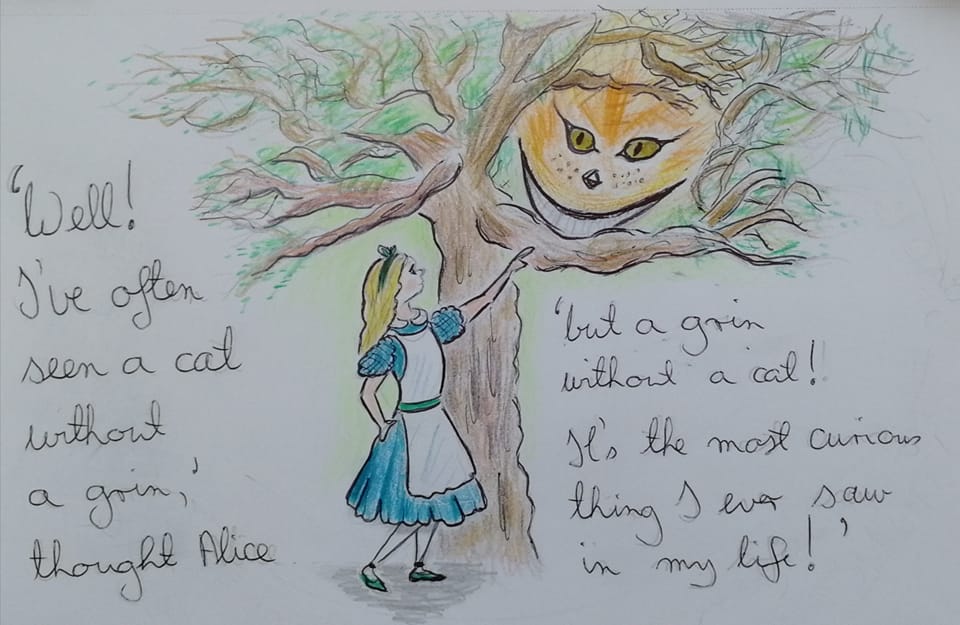 'Well!
I've often
seen a cat
without
a grin,'
thought Alice
'but a grin
without a cat!
It's the most curious
thing I ever saw
in my life!'